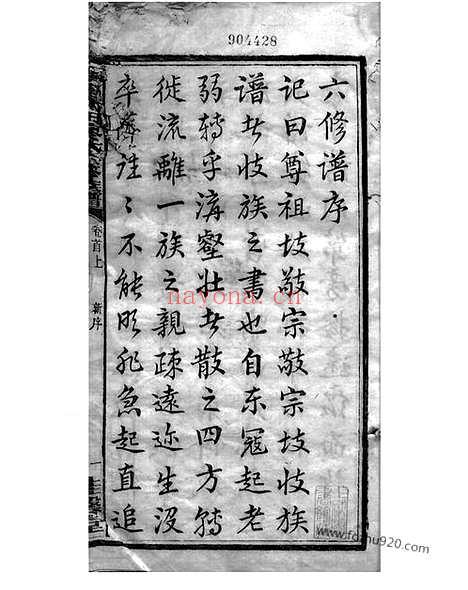 904428
六修譜序
記曰尊祖故敬宗敬宗故收族
譜者收族之書也自东寇起老
弱轉乎溝壑壯者散之四方轉
徙流離一族之親疎遠近生沒
卒葬誌〻不能明非急起直追
卷首上
新序
nayona.cn
www.fozhu920.com